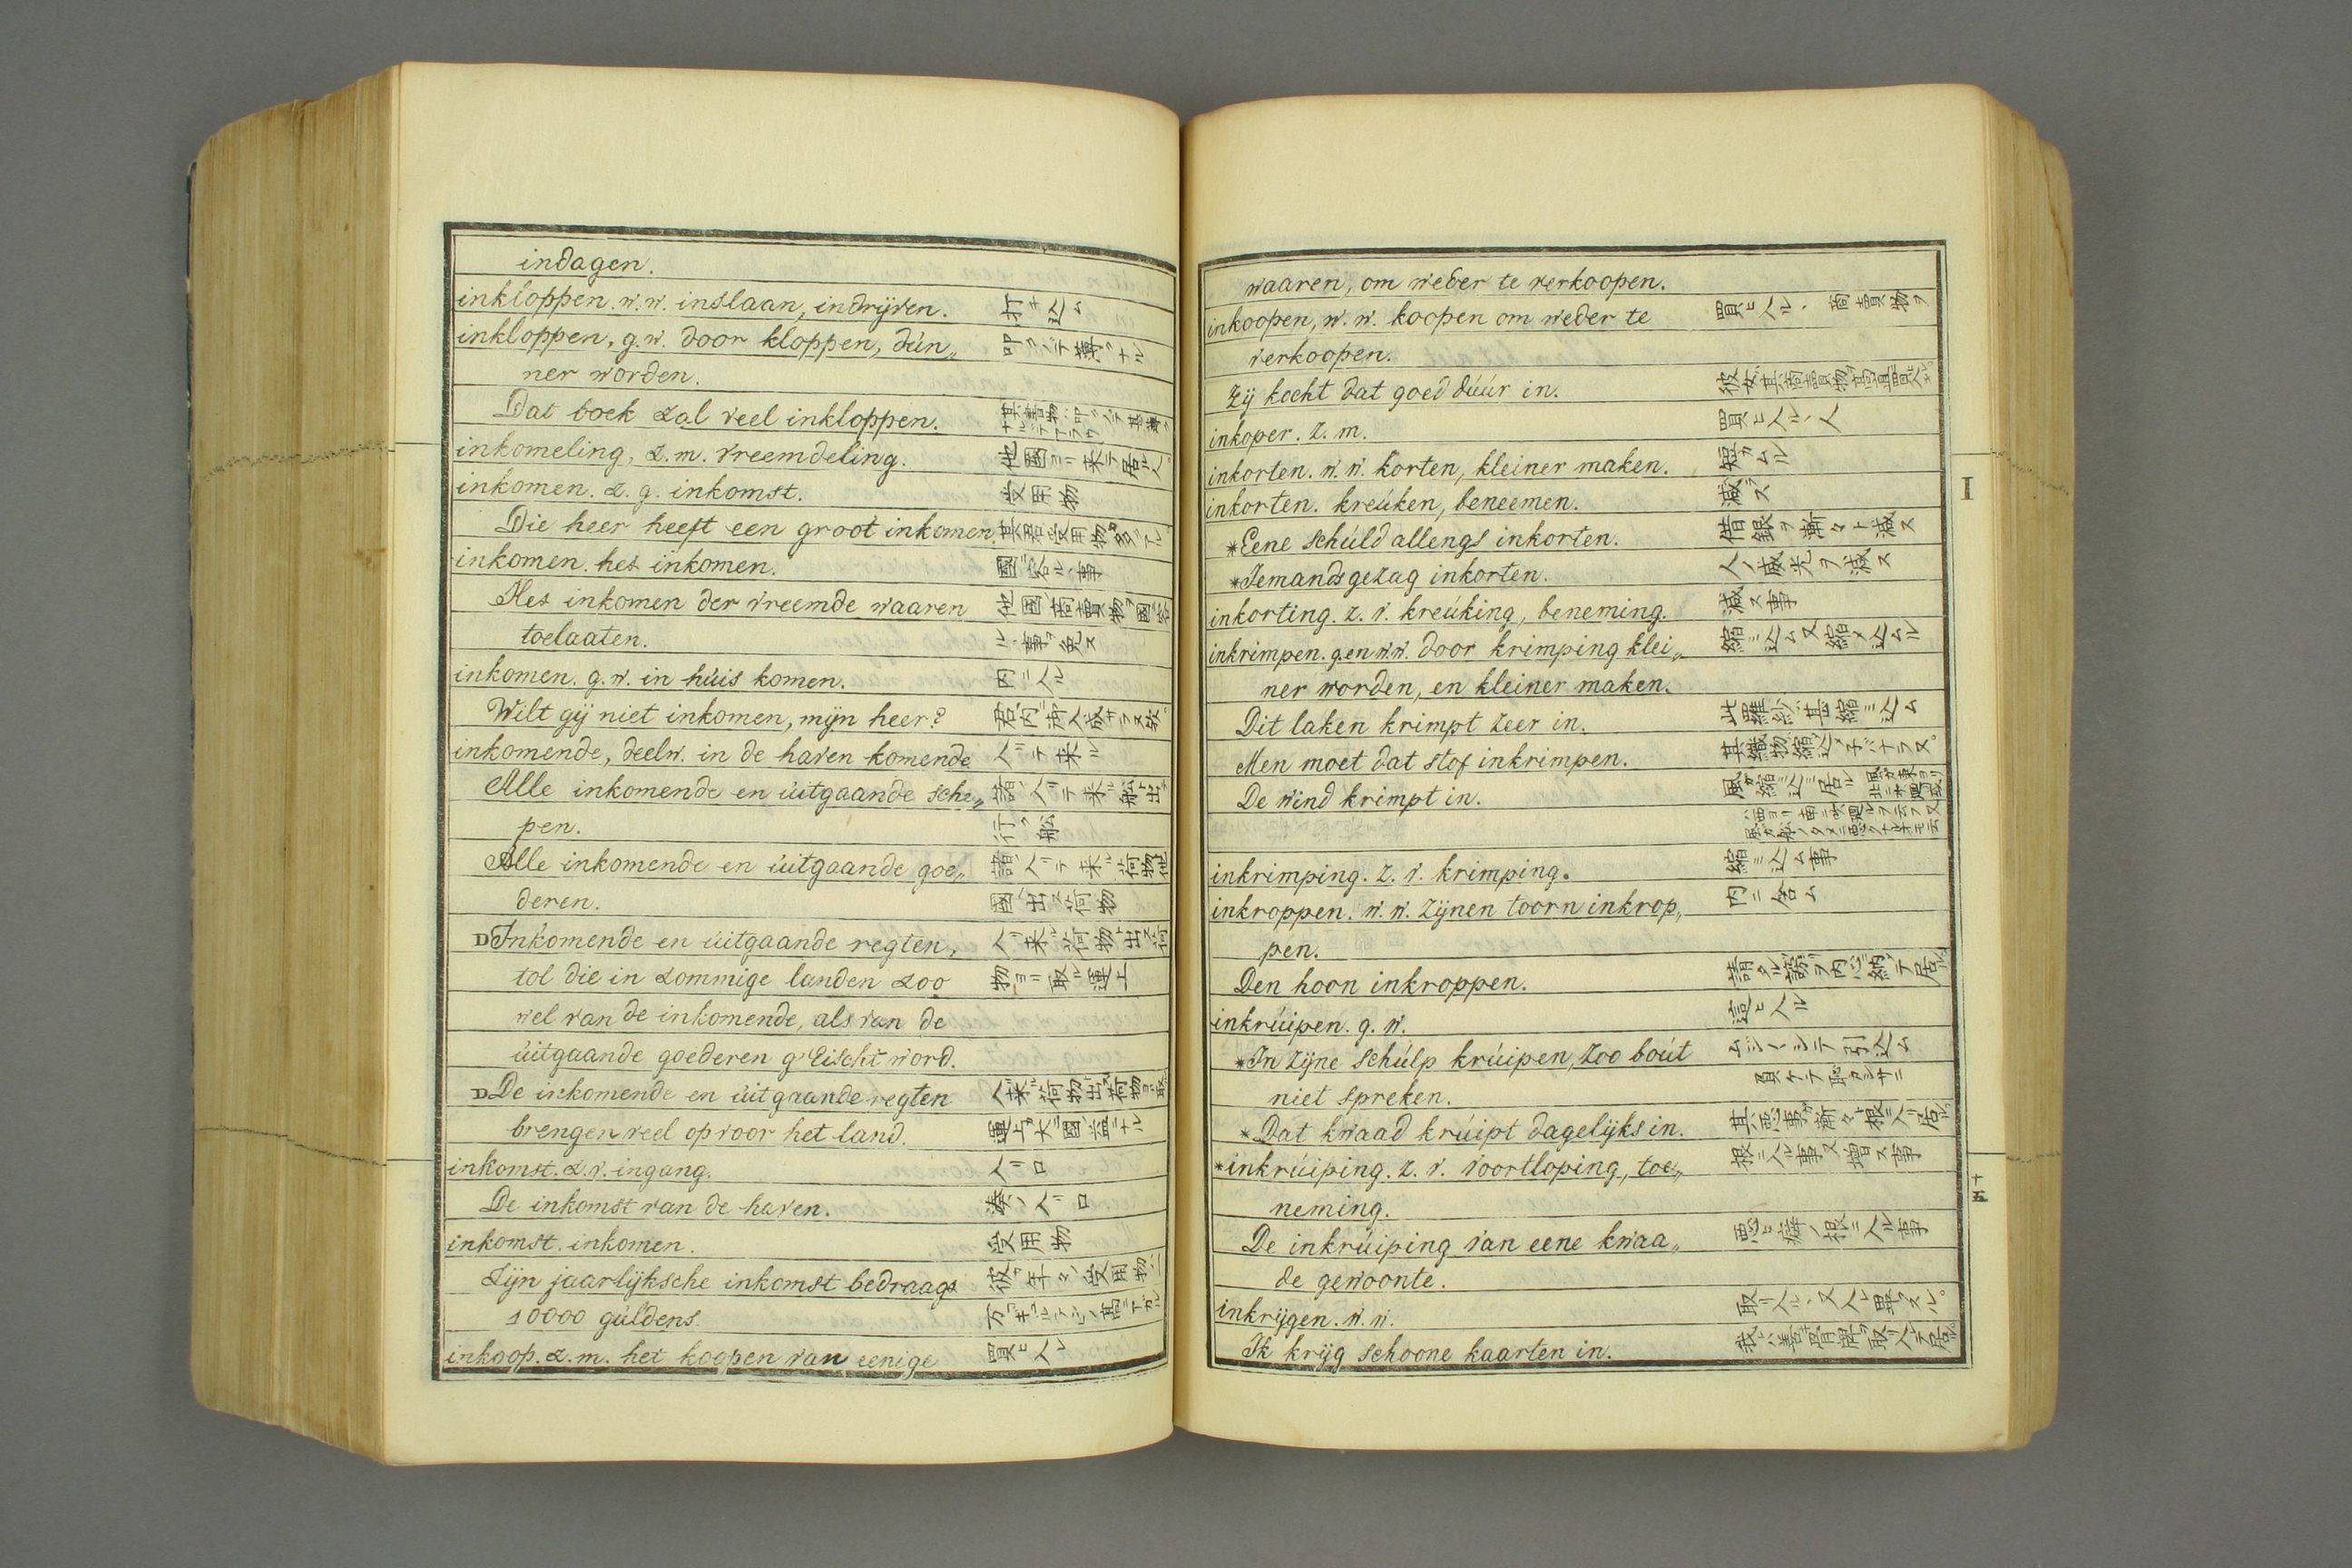 indagen.
inkloppen. w. w. inslaan, indrijven. 打チ込ム
inkloppen, g. w. door kloppen, dún„ 叩ヒテ薄クナル
ner worden.
Dat boek zal veel inkloppen.
inkomeling, z. m. vreemdeling. 他國ヨリ来テ居ル人
inkomen. z. g. inkomst. 受用物
Die heer heeft een groot inkomen. 其君受用物ガ多クアル
inkomen. het inkomen. 國ニ容ル事
Het inkomen der vreemde waaren 他國ノ商賣物ヲ國ニ容
toelaaten. ルヽ事ヲ免ス
inkomen. g. w. in húis komen. 内ニ入ル
Wilt gij niet inkomen, mijn heer?
inkomende, deelw. in de haven komende 入リテ来ル
Alle inkomende en úitgaande sche„ 諸ノ入リテ来ル船ト出
pen. 行ク船
Alle inkomende en úitgaande goe„ 諸ノ入リテ来ル荷物他
deren. 國ニ出ス荷物
D Inkomende en úitgaande regten, 入リ来ル荷物ト出ス荷
tol die in zommige landen zoo 物ヨリ取ル運上
wel van de inkomende, als van de
úitgaande goederen g'eischt word.
D De inkomende en úitgaande regten 入来ル荷物出ス荷物ヨリ取ル
brengen veel op voor het land. 運上ガ大ニ國益ニナル
inkomst. z. v. ingang. 入リ口
De inkomst van de haven. 湊ノ入リ口
inkomst. inkomen. 受用物
Zijn jaarlijksche inkomst bedraagt 彼ガ年々ノ受用物ハ一
10000 gúldens.
inkoop. z. m. het koopen van eenige 買ヒ入レ
waaren, om weder te verkoopen.
inkoopen, w. w. koopen om weder te 買ヒ入ル、商賣物ヲ
verkoopen.
Zij kocht dat goed dúúr in. 彼女ガ其商賣物ヲ高直ニ買入レタ
inkoper. z. m. 買ヒ入ルヽ人
inkorten. w. w. korten, kleiner maken. 短カムル
inkorten. kreúken, beneemen. 減ズ
*Eene schúld allengs inkorten. 借銀ヲ漸々ト減ス
*Iemands gezag inkorten. 人ノ威光ヲ減ス
inkorting. z. v. kreúking, beneming. 減ス事
inkrimpen. g. en w. w. door krimping klei„ 縮ミ込ム又縮メ込ムル
ner worden, en kleiner maken.
Dit laken krimpt zeer in. 此羅紗ガ甚縮ミ込ム
Men moet dat stof inkrimpen. 其織物ヲ縮メ込メ子バナラヌ
De wind krimpt in. 風ガ縮ミ込ミテ居ル
inkrimping. z. v. krimping. 縮ミ込ム事
inkroppen. w. w. zijnen toorn inkrop„ 内ニ含ム
pen.
Den hoon inkroppen.
inkrúipen. g. w. 這ヒ入ル
*In zijne schúlp krúipen, zoo boút
niet spreken.
*Dat kwaad krúipt dagelijks in. 其悪事ガ漸々ト根ニ入リ居ル
*inkrúiping. z. v. voortloping, toe„ 根ニ入ル事又増ス事
neming.
De inkrúiping van eene kwaa„ 悪ヒ癖ノ根ニ入ル事
de gewoonte.
inkrijgen. w. w.
Ik krijg schoone kaarten in.
I
十五